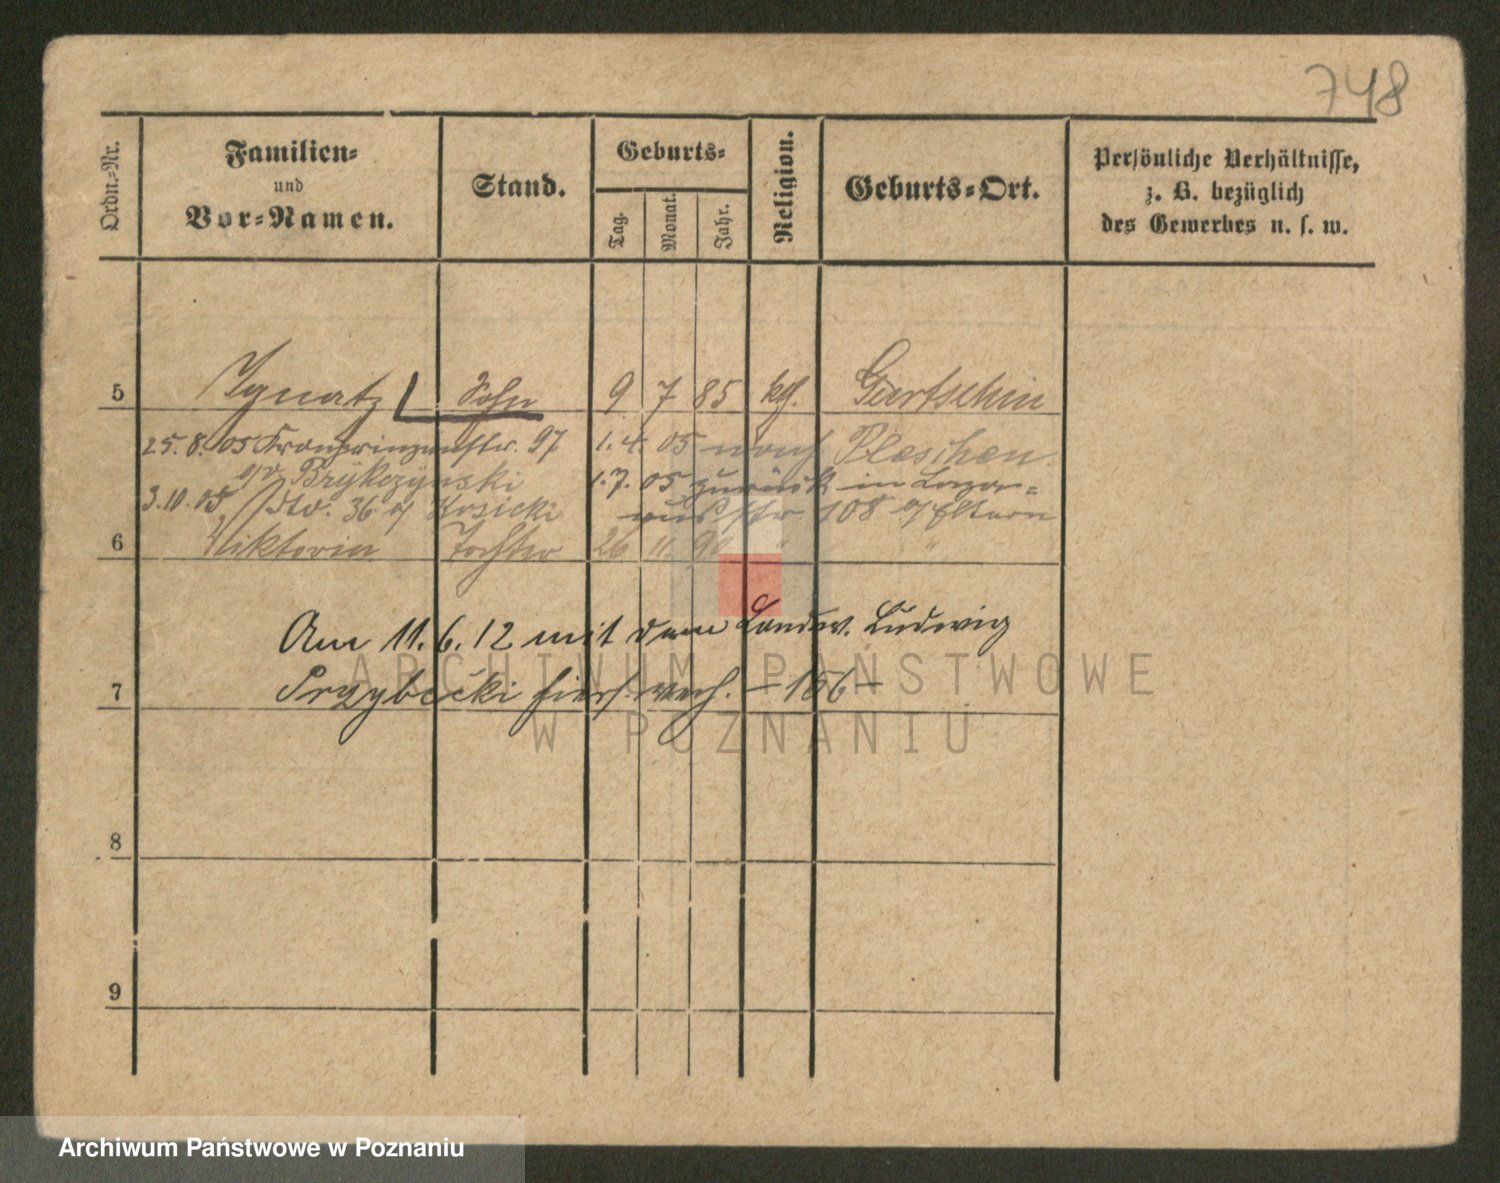 748
Ordn.-Nr.
Familien-
und
Vor-Namen.
Stand.
Geburts-
Tag.
Monat.
Jahr.
Religion.
Geburts-Ort.
Persönliche Verhältnisse,
z. B. bezüglich
des Gewerbes u. s. w.
5 Ignatz Sohn 9 7 85 kth. Gartschin
25.8.05 Kronprinzenstr. 97 1.4.05 nach Pleschen
Brykczynski 1.7.05 zurück in Lazar-
3.10.05 36 Kosicki str. 108 Eltern
6 Viktoria Tochter 26 11 90 " "
Am 11.6.12 mit dem Landw. Ludwig
7 Przybecki hier verh. – 156 –
8
9
ARCHIWUM PAŃSTWOWE
W POZNANIU
Archiwum Państwowe w Poznaniu